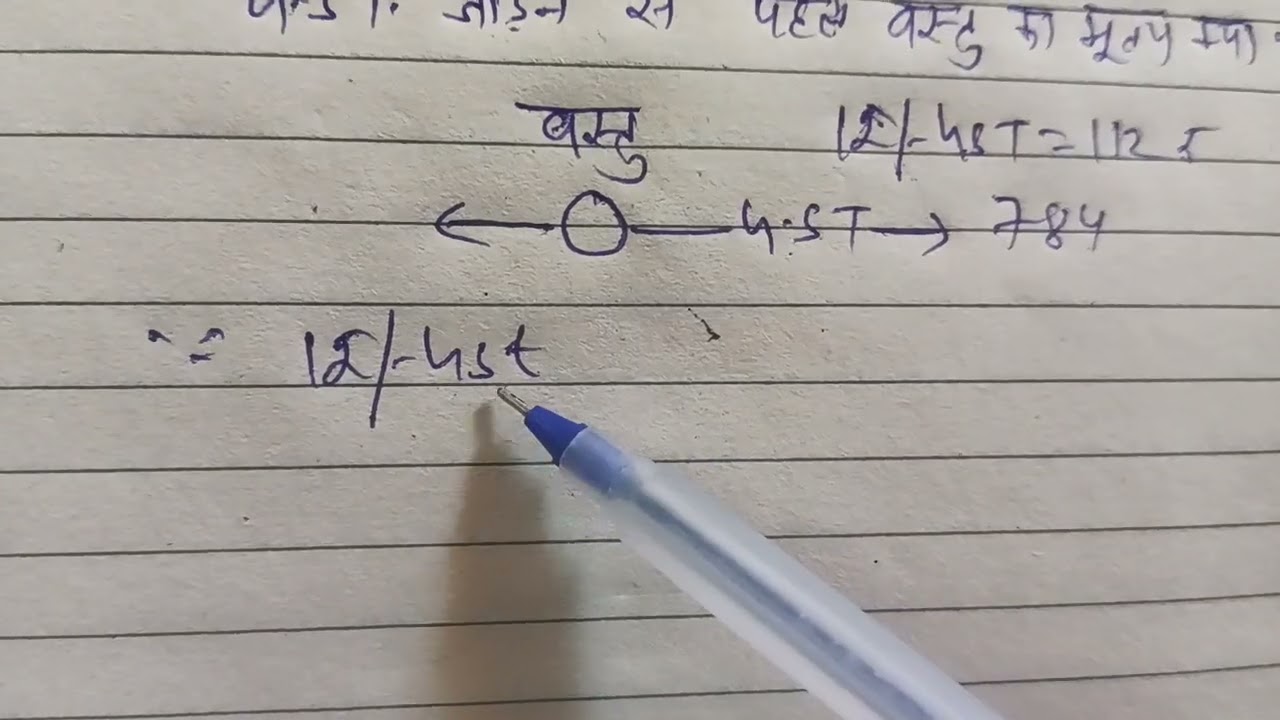 जोड़ने से पहले वस्तु का मूल्य क्या
वस्तु
12/-GST = 112 ₹
G.ST 784
∵ 12/-Gst